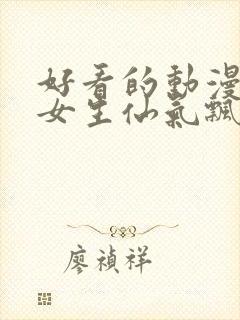 好看的動漫
女生仙氣飄
廖禎祥